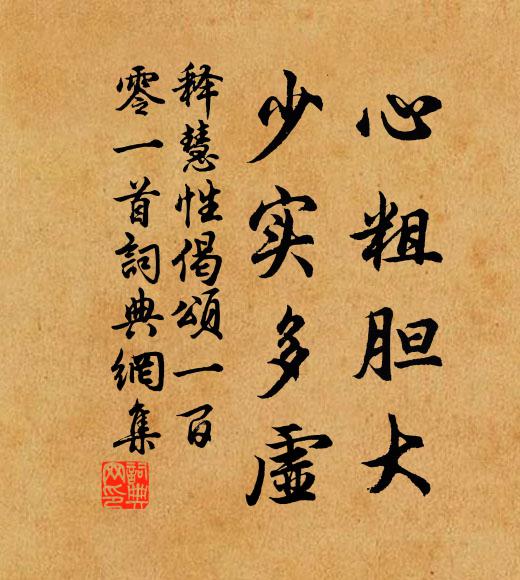 心粗胆大
少实多虚
释慧性偈頌一百
零一首詞典網集
詞典
網印